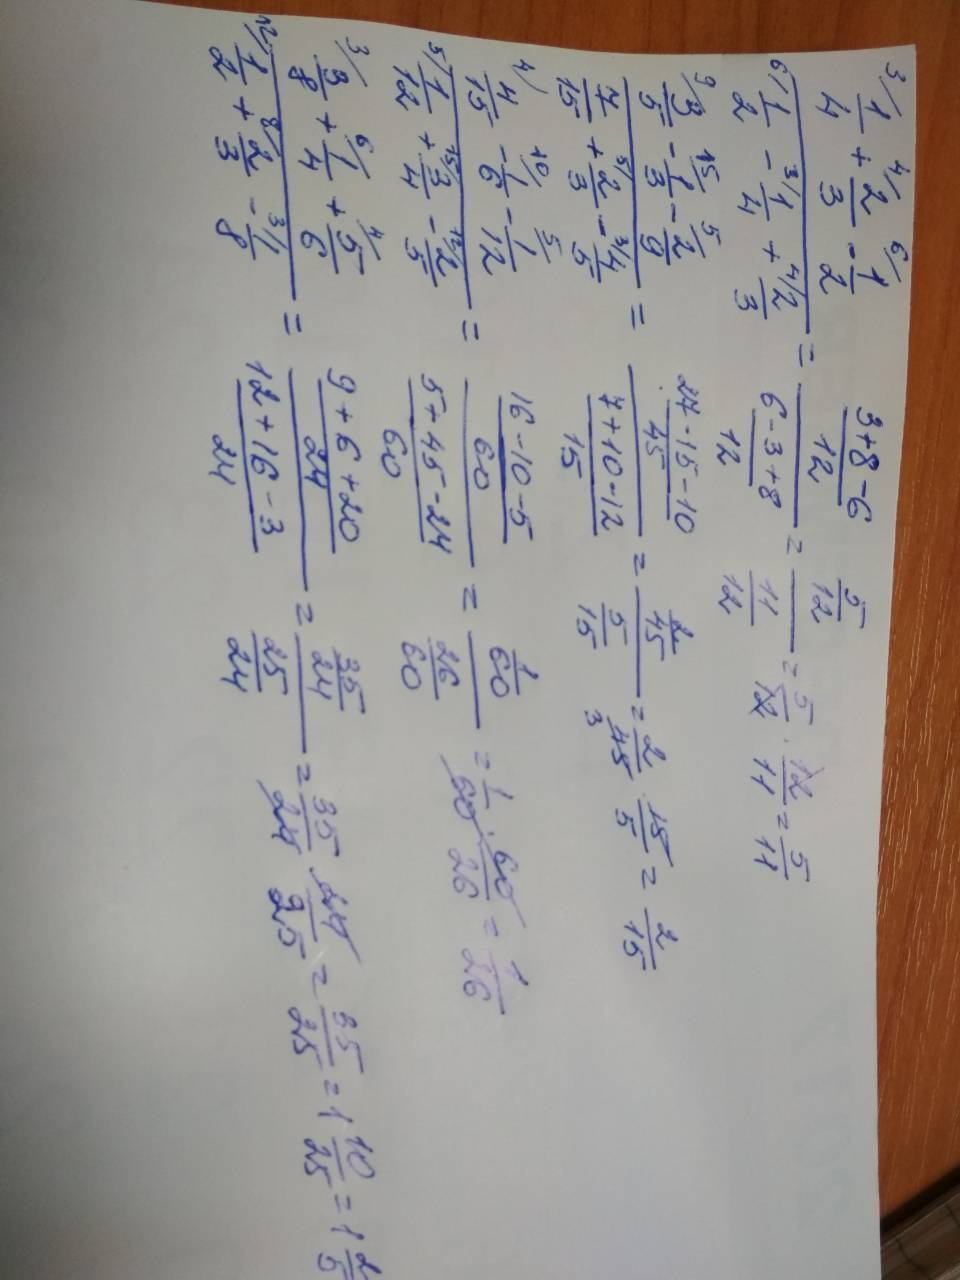 3/ 1/4 + 4/ 2/3 - 6/ 1/2
6/ 1/2 - 3/ 1/4 + 4/ 2/3 = (3+8-6)/12 / (6-3+8)/12 = 5/12 / 11/12 = 5/12 · 12/11 = 5/11
9/ 3/5 - 15/ 1/3 - 5/ 2/9
7/15 + 5/ 2/3 - 3/ 4/5 = (27-15-10)/45 / (7+10-12)/15 = 2/45 / 5/15 = 2/45 3 · 15/5 = 2/15
4/ 4/15 - 10/ 1/6 - 5/ 1/12
5/ 1/12 + 15/ 3/4 - 12/ 2/5 = (16-10-5)/60 / (5+45-24)/60 = 1/60 / 26/60 = 1/60 · 60/26 = 1/26
3/ 3/8 + 6/ 1/4 + 4/ 5/6
12/ 1/2 + 8/ 2/3 - 3/ 1/8 = (9+6+20)/24 / (12+16-3)/24 = 35/24 / 25/24 = 35/24 · 24/25 = 35/25 = 1 10/25 = 1 2/5